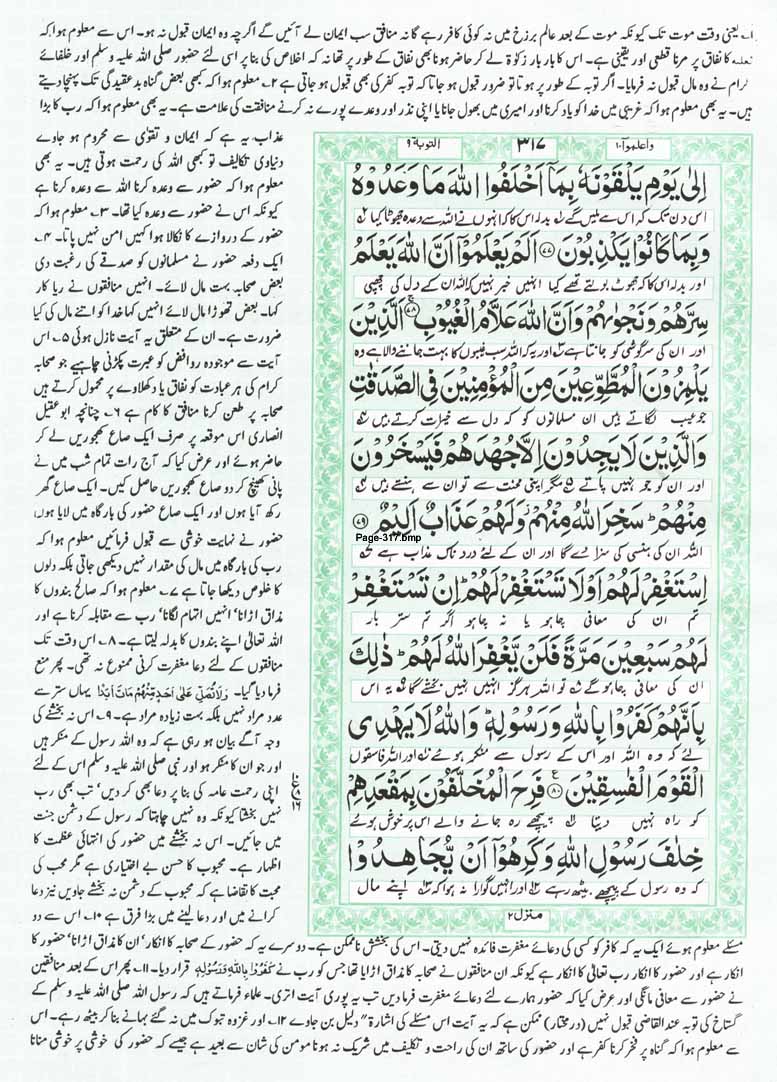 ۱؎ یعنی وقت موت تک کیونکہ موت کے بعد عالم برزخ میں نہ کوئی کافر رہے گا نہ منافق سب ایمان لے آئیں گے اگرچہ وہ ایمان قبول نہ ہو۔ اس سے معلوم ہوا کہ
کا نفاق پر مرنا قطعی اور یقینی ہے۔ اس کا بار بار زکوٰۃ لے کر حاضر ہونا بھی نفاق کے طور پر تھا نہ کہ اخلاص کی بنا پر اسی لئے حضور صلی اللہ علیہ وسلم اور خلفائے
کرام نے وہ مال قبول نہ فرمایا۔ اگر توبہ کے طور پر ہوتا تو ضرور قبول ہو جاتا کہ توبہ کفر کی بھی قبول ہو جاتی ہے ۲؎ معلوم ہوا کہ کبھی بعض گناہ بدعقیدگی تک پہنچا دیتے
ہیں۔ یہ بھی معلوم ہوا کہ غریبی میں خدا کو یاد کرنا اور امیری میں بھول جانا یا اپنی نذر اور وعدے پورے نہ کرنے منافقت کی علامت ہے۔ یہ بھی معلوم ہوا کہ رب کا بڑا
واعلموآ ۱۰
۳۱۷
التوبۃ ۹
اِلٰى يَوْمِ يَلْقَوْنَهٗ بِمَاۤ اَخْلَفُوا اللّٰهَ مَا وَعَدُوْهُ
اس دن تک کہ اس سے ملیں گے ۱؎ بدلہ اس کا کہ انہوں نے اللہ سے وعدہ جھوٹا کیا
وَبِمَا كَانُوْا يَكْذِبُوْنَ ۷۷ اَلَمْ يَعْلَمُوْۤا اَنَّ اللّٰهَ يَعْلَمُ
اور بدلہ اس کا کہ جھوٹ بولتے تھے کیا انہیں خبر نہیں کہ اللہ ان کے دل کی چھپی
سِرَّهُمْ وَنَجْوٰىهُمْ وَاَنَّ اللّٰهَ عَلَّامُ الْغُيُوْبِ ۷۸ اَلَّذِيْنَ
اور ان کی سرگوشی کو جانتا ہے اور یہ کہ اللہ سب غیبوں کا بہت جاننے والا ہے وہ
يَلْمِزُوْنَ الْمُطَّوِّعِيْنَ مِنَ الْمُؤْمِنِيْنَ فِى الصَّدَقٰتِ
جو عیب لگاتے ہیں ان مسلمانوں کو کہ دل سے خیرات کرتے ہیں
وَالَّذِيْنَ لَا يَجِدُوْنَ اِلَّا جُهْدَهُمْ فَيَسْخَرُوْنَ
اور ان کو جو نہیں پاتے مگر اپنی محنت سے تو ان سے ہنستے ہیں
مِنْهُمْ ؕ سَخِرَ اللّٰهُ مِنْهُمْ ؗ وَلَهُمْ عَذَابٌ اَلِيْمٌ ۷۹
Page-317.bmp
اللہ ان کی ہنسی کی سزا دے گا اور ان کے لئے دردناک عذاب ہے
اِسْتَغْفِرْ لَهُمْ اَوْ لَا تَسْتَغْفِرْ لَهُمْ ؕ اِنْ تَسْتَغْفِرْ
تم ان کی معافی چاہو یا نہ چاہو اگر تم ستر بار
لَهُمْ سَبْعِيْنَ مَرَّةً فَلَنْ يَّغْفِرَ اللّٰهُ لَهُمْ ؕ ذٰلِكَ
ان کی معافی چاہو گے تو اللہ ہرگز انہیں نہیں بخشے گا یہ اس
بِاَنَّهُمْ كَفَرُوْا بِاللّٰهِ وَرَسُوْلِهٖ ؕ وَاللّٰهُ لَا يَهْدِى
لئے کہ وہ اللہ اور اس کے رسول سے منکر ہوئے اور اللہ فاسقوں
الْقَوْمَ الْفٰسِقِيْنَ ۸۰ فَرِحَ الْمُخَلَّفُوْنَ بِمَقْعَدِهِمْ
کو راہ نہیں دیتا پیچھے رہ جانے والے اس پر خوش ہوئے
خِلٰفَ رَسُوْلِ اللّٰهِ وَكَرِهُوْۤا اَنْ يُّجَاهِدُوْا
کہ وہ رسول کے پیچھے بیٹھ رہے اور انہیں گوارا نہ ہوا کہ اپنے مال
منزل ۲
عذاب یہ ہے کہ ایمان و تقویٰ سے محروم ہو جاوے
دنیاوی تکالیف تو کبھی اللہ کی رحمت ہوتی ہیں۔ یہ بھی
معلوم ہوا کہ حضور سے وعدہ کرنا اللہ سے وعدہ کرنا ہے
کیونکہ اس نے حضور سے وعدہ کیا تھا۔ ۳؎ معلوم ہوا کہ
حضور کے دروازے کا نکالا ہوا کہیں امن نہیں پاتا۔ ۴؎
ایک دفعہ حضور نے مسلمانوں کو صدقے کی رغبت دی
بعض صحابہ بہت مال لائے۔ انہیں منافقوں نے ریا کار
کہا۔ بعض تھوڑا مال لائے انہیں کہا خدا کو اتنے مال کی کیا
ضرورت ہے۔ ان کے متعلق یہ آیت نازل ہوئی ۵؎ اس
آیت سے موجودہ روافض کو عبرت پکڑنی چاہیے جو صحابہ
کرام کی ہر عبادت کو نفاق یا دکھلاوے پر محمول کرتے ہیں
صحابہ پر طعن کرنا منافق کا کام ہے ۶؎ چنانچہ ابو عقیل
انصاری اس موقعہ پر صرف ایک صاع کھجوریں لے کر
حاضر ہوئے اور عرض کیا کہ آج رات تمام شب میں نے
پانی کھینچ کر دو صاع کھجوریں حاصل کیں۔ ایک صاع گھر
رکھ آیا ہوں اور ایک صاع حضور کی بارگاہ میں لایا ہوں
حضور نے نہایت خوشی سے قبول فرمائیں معلوم ہوا کہ
رب کی بارگاہ میں مال کی مقدار نہیں دیکھی جاتی بلکہ دلوں
کا خلوص دیکھا جاتا ہے ۷؎ معلوم ہوا کہ صالح بندوں کا
مذاق اڑانا' انہیں اتہام لگانا' رب سے مقابلہ کرنا ہے اور
اللہ تعالیٰ اپنے بندوں کا بدلہ لیتا ہے۔ ۸؎ اس وقت تک
منافقوں کے لئے دعا مغفرت کرنی ممنوع نہ تھی۔ پھر منع
فرما دیا گیا۔ وَلَا تُصَلِّ عَلٰى اَحَدٍ مِّنْهُمْ مَّاتَ اَبَدًا یہاں ستر سے
عدد مراد نہیں بلکہ بہت زیادہ مراد ہے۔ ۹؎ اس نہ بخشے کی
وجہ آگے بیان ہو رہی ہے کہ وہ اللہ رسول کے منکر ہیں
اور جو ان کا منکر ہو اور نبی صلی اللہ علیہ وسلم اس کے لئے
اپنی رحمت عامہ کی بنا پر دعا بھی کر دیں' تب بھی رب
نہیں بخشتا کیونکہ وہ نہیں چاہتا کہ رسول کے دشمن جنت
میں جائیں۔ اس نہ بخشے میں حضور کی انتہائی عظمت کا
اظہار ہے۔ محبوب کا حسن بے اختیاری ہے مگر محب کی
محبت کا تقاضا ہے کہ محبوب کے دشمن نہ بخشے جاویں نیز دعا
کرانے میں اور دعا لینے میں بڑا فرق ہے ۱۰؎ اس سے دو
مسئلے معلوم ہوئے ایک یہ کہ کافر کو کسی کی دعائے مغفرت فائدہ نہیں دیتی۔ اس کی بخشش ناممکن ہے۔ دوسرے یہ کہ حضور کے صحابہ کا انکار' ان کا مذاق اڑانا' حضور کا
انکار ہے اور حضور کا انکار رب تعالیٰ کا انکار ہے کیونکہ ان منافقوں نے صحابہ کا مذاق اڑایا تھا جس کو رب نے كَفَرُوْا بِاللّٰهِ وَرَسُوْلِهٖ قرار دیا۔ ۱۱؎ پھر اس کے بعد منافقین
نے حضور سے معافی مانگی اور عرض کیا کہ حضور ہمارے لئے دعائے مغفرت فرما دیں تب یہ پوری آیت اتری۔ علماء فرماتے ہیں کہ رسول اللہ صلی اللہ علیہ وسلم کے
گستاخ کی توبہ عند القاضی قبول نہیں (در مختار) ممکن ہے کہ یہ آیت اس مسئلے کی اشارۃ" دلیل بن جاوے ۱۲؎ اور غزوہ تبوک میں نہ گئے بہانے بنا کر بیٹھ رہے۔ اس
سے معلوم ہوا کہ گناہ پر فخر کرنا کفر ہے اور حضور کی ساتھ ان کی راحت و تکلیف میں شریک نہ ہونا مومن کی شان سے بعید ہے جیسے کہ حضور کی خوشی پر خوشی منانا